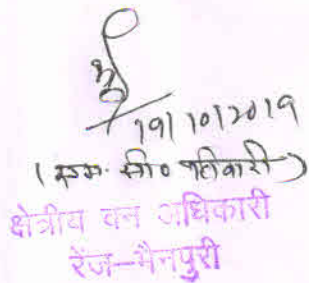 19/10/2019
(एम. सी० तिवारी)
क्षेत्रीय वन अधिकारी
रेंज-मैनपुरी